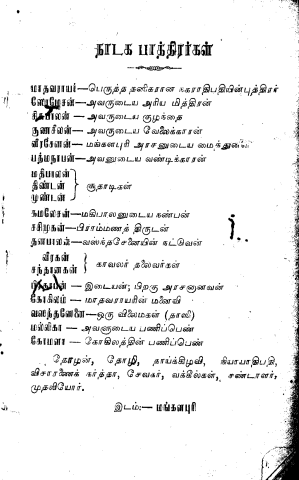 நாடக பாத்திரர்கள்
மாதவராயம்—பெருத்த தனிகரான நகராதிபதியின்புத்திரர்
ஸோமேசன்—அவருடைய அரிய மித்திரன்
சிதபாலன்—அவருடைய குழந்தை
குணசீலன்—அவருடைய வேலைக்காரன்
வீரசேனன்—மங்களபுரி அரசனுடைய மைந்துனன்
பத்மநாபன்—அவனுடைய வண்டிக்காரன்
மதிபாலன்
திண்டன் } சூதாடிகள்
முண்டன்
கமலேசன்—மதிபாலனுடைய நண்பன்
சசிமுகன்—பிராம்மணத் திருடன்
தனபாலன்—வஸந்தசேனையின் நட்வென்
வீரகன்
சந்தானகன் } காவலர் தலைவர்கள்
—இடையன்; பிறகு அரசனானவன்
கோகிலம்—மாதவராயரின் மனைவி
வஸந்தஸேனை—ஒரு விலைமகள் (தாஸி)
மல்லிகா—அவளுடைய பணிப்பெண்
கோமளா—கோகிலத்தின் பணிப்பெண்
தோழன், தோழி, தாய்க்கிழவி, நியாயாதிபதி,
விசாரணைக் கர்த்தா, சேவகர், வக்கீல்கள், சண்டாளர்,
முதலியோர்.
இடம்:— மங்களபுரி